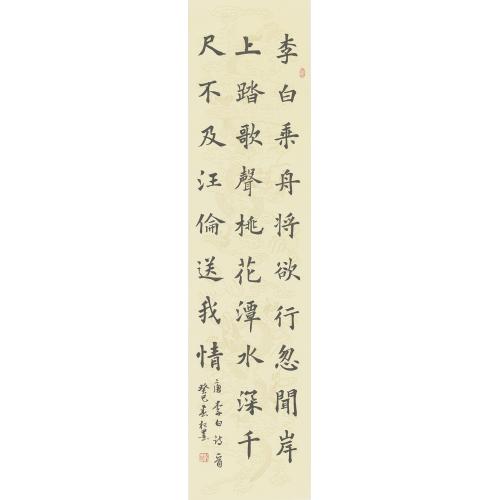 李白乘舟將欲行忽聞岸
上踏歌聲桃花潭水深千
尺不及汪倫送我情
唐李白诗一首
癸巳